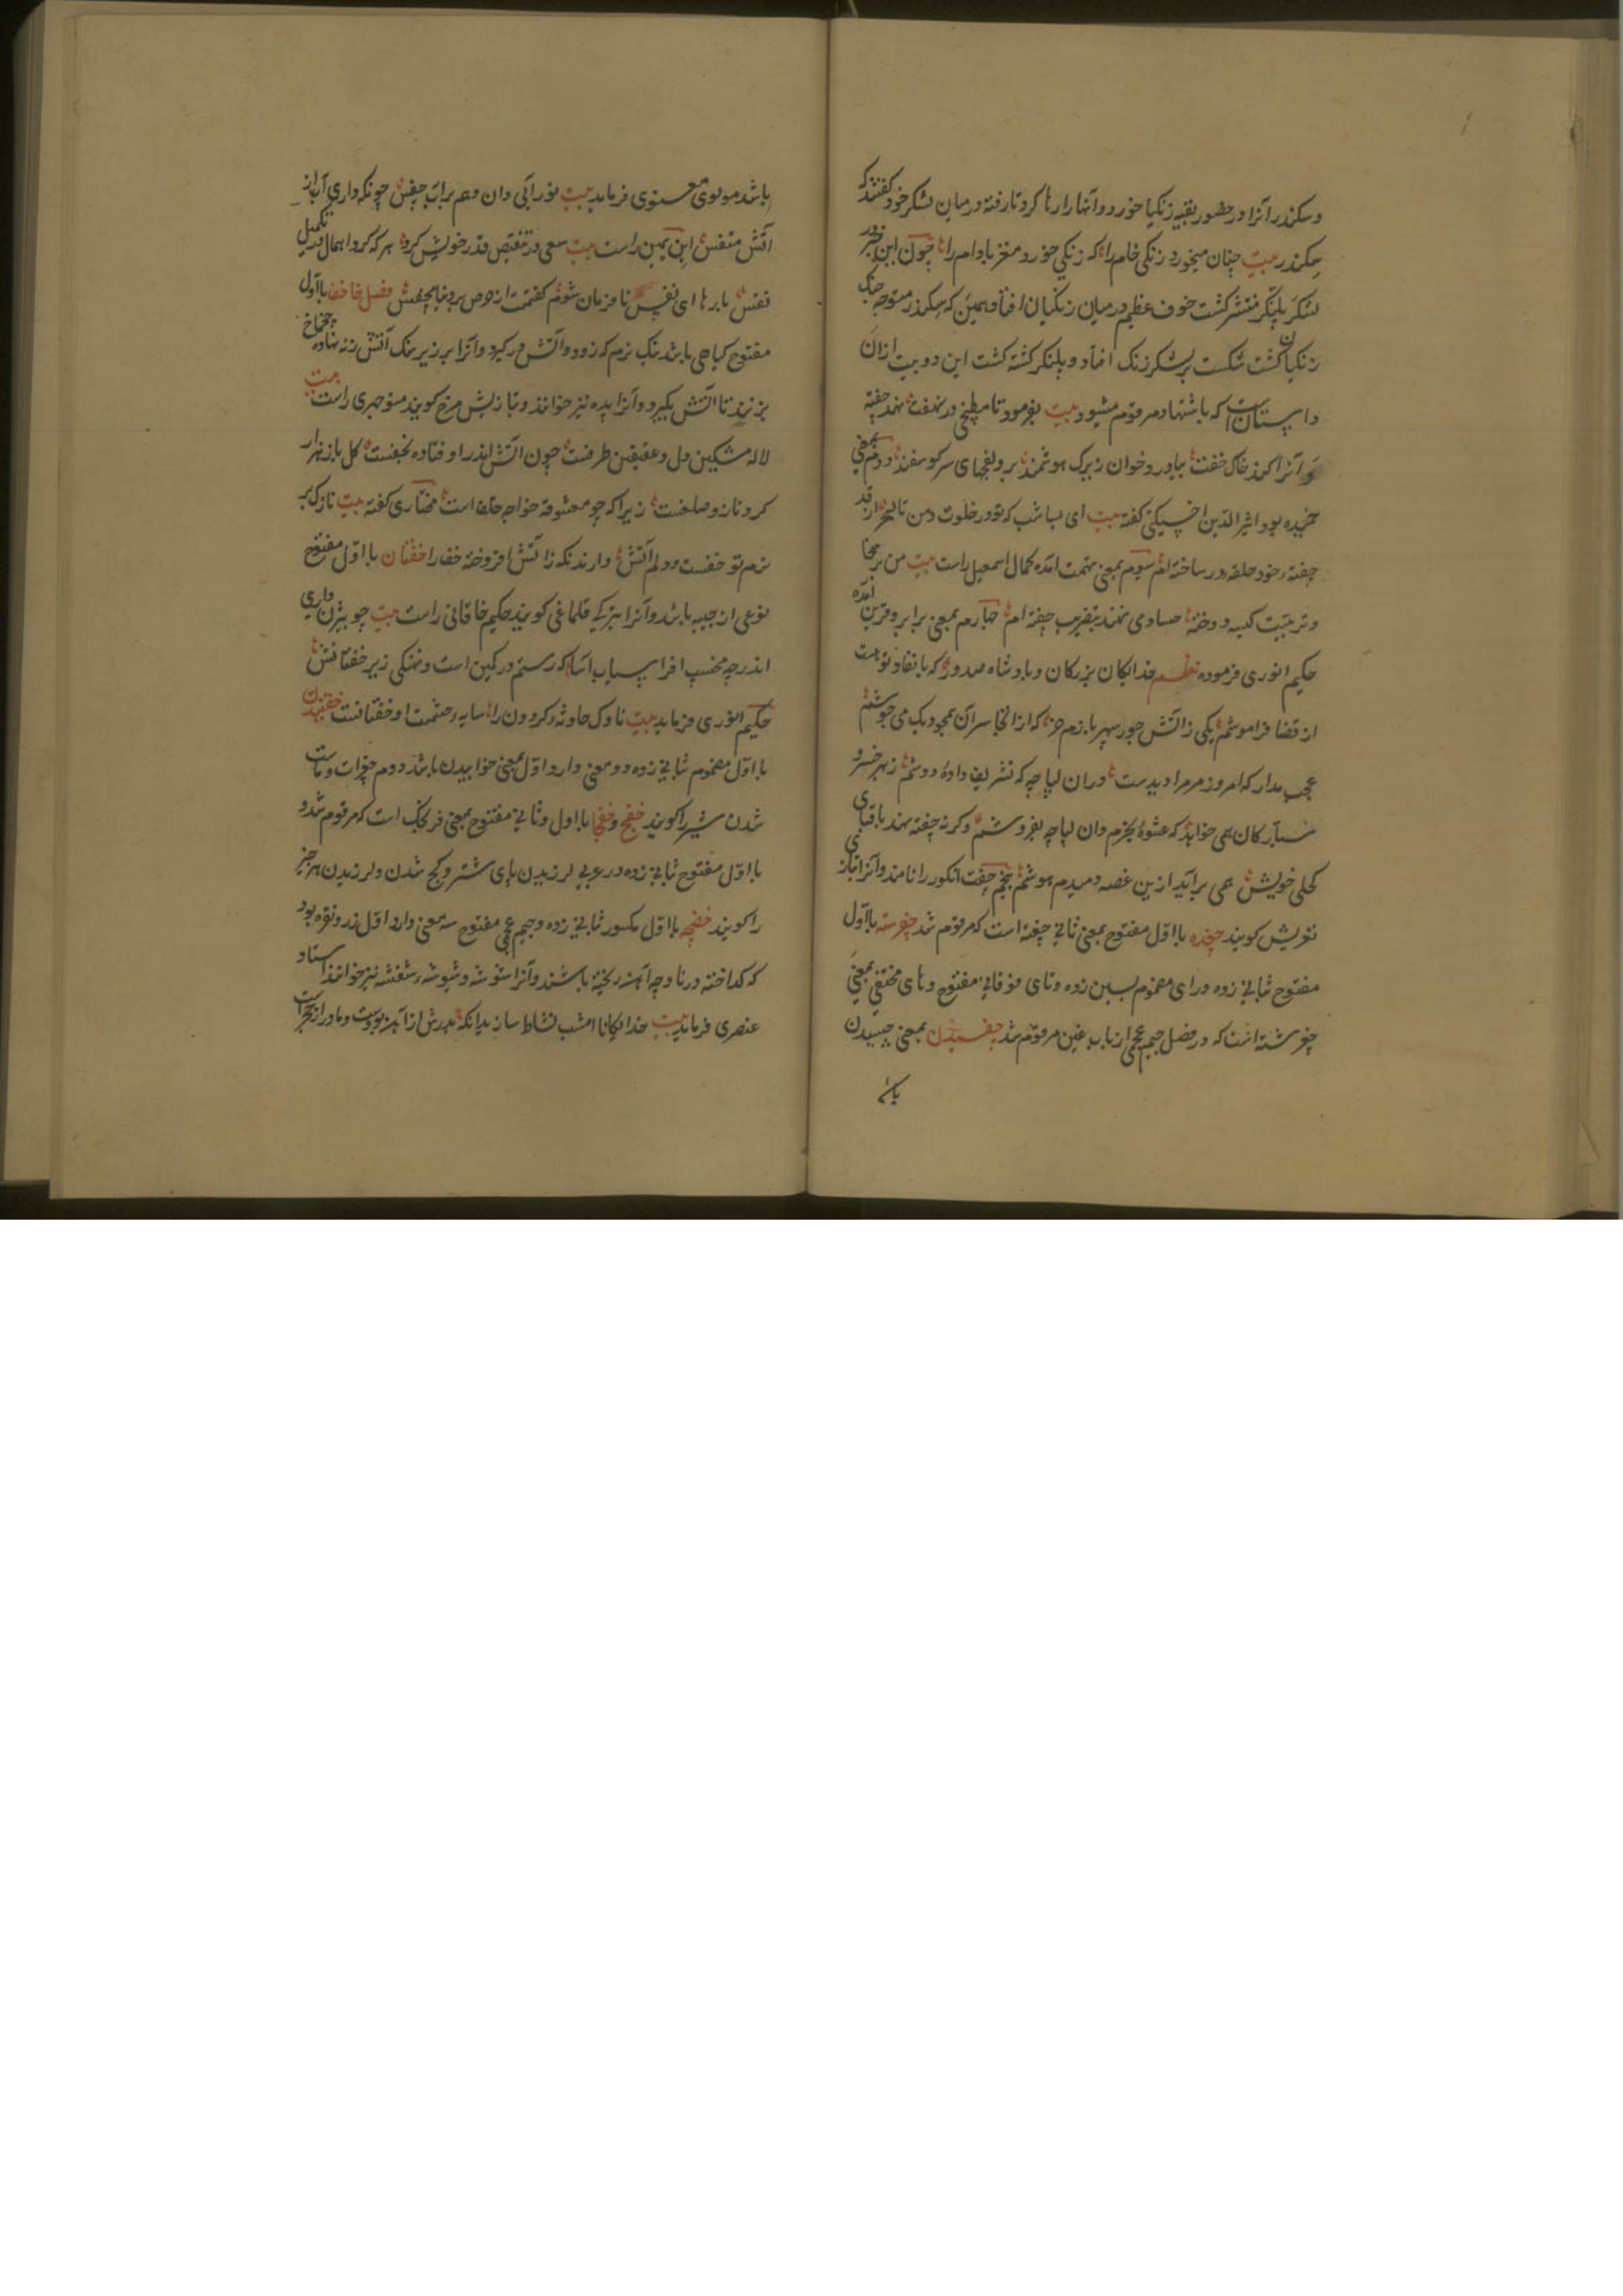 و سکندر آنرا در حضور بقیه زنکیا خورد و آنها را رها کرد تا رفته در میان لشکر خود کفتند که
سکندر بیت چنان میخورد زنکی خام را که زنکی خورد مغز بادام را چون این خبر در
لشکر پلنکر منتشر کشت خوف عظیم در میان زنکیان افتاد و همین که سکندر متوجه جنک
زنکیان کشت شکست بر لشکر زنک افتاد و پلنکر کشته کشت این دو بیت ازان
داستان است که باشتهاد مرقوم میشود بیت بفرمود تا مطبخی در نهفت نهد چفته
و آنرا کند خاک خفت بیاورد خوان زیرک هوشمند برو لفجهای سر کوسفند دوم بمعنی
خمیده بود اثیر الدین اخسیکتی کفته بیت ای بسا شب که تو در خلوت و من تا بسحر از قد
چفته خود حلقه در ساخته ام سوم بمعنی تهمت آمده کمال اسمعیل راست بیت من بر سخا
و تربیتت کیسه دوخته حساد می نهند بتقریب چفته ام چهارم بمعنی برابر و قرین آمده
حکیم انوری فرموده نظم خدایکان بزرکان و پادشاه صدور که با نفاذ تو هست
از قضا فراموشم یکی ز آتش جور سپهر بازم خر که از انجا سر آن همچو دیک می جوشم
عجب مدار که امروز مر مرا دیدست دران لباچه که تشریف داده دوشم ز بهر خسرو
سیارکان همی خواهد که عشوه بخرم وان لباچه بفروشم وکرنه چفته نهد با قبای
کحلی خویش همی برآید ازین غصه و میدم هوشم پنجم چفت انکور را نامند و آنرا بتازی
تعریش کویند چفده با اول مفتوح بمعنی ثانی چفته است که مرقوم شد چفرسته با اول
مفتوح بثانی زده و رای مضموم بسین زده و تای فوقانی مفتوح و های مختفی بمعنی
چغرشته است که در فصل جیم عجمی از باب غین مرقوم شد چفسیدن بمعنی چسپیدن
باشد مولوی معنوی فرماید بیت نور آبی دان و هم بر آب چفس چونکه داری آب از
آتش متفس ابن یمین راست بیت سعی در تنقیص قدر خویش کرد هر که کرد اهمال در تکمیل
نفس بارها ای نفس نافرمان شوم کفتمت از حرص بر دنیا مچفس فصل خا خف با اول
مفتوح کیاهی باشد نیک نرم که زود آتش در کیرد و آنرا بر زیر سنک آتش زنه نهاده چخماخ
بزنند تا آتش بکیرد و آنرا پده نیز خوانند و بتازیش مرخ کویند منوچهری راست بیت
لاله مشکین دل و عقیقین طرفست چون آتش اندر او فتاده بخفست کل باز نهزار
کرد ناز و صلفست زیرا که چو معشوقه خواجه خلف است مختاری کفته بیت نازک بر
نرم تو خفست و دلم آتش دارند نکه ز آتش افروخته خف را خفتان با اول مفتوح
نوعی از جیبه باشد و آنرا بترکی قلماغی کویند حکیم خاقانی راست بیت چو بیژن داری
اندر چه مخسپ افراسیاب آسا که رستم در کمین است و نهنکی زیر خفتانش
حکیم انوری فرماید بیت ناوک حادثه کردون را سایه حشمت او خفتانست خفتیدن
با اول مضموم بثانی زده دو معنی دارد اول بمعنی خوابیدن باشد دوم جغرات و ماست
شدن شیر را کویند خفج و خفجا با اول و ثانی مفتوح بمعنی فرنجک است که مرقوم شد و
با اول مفتوح بثانی زده در عربی لرزیدن پای شتر و کج شدن و لرزیدن هر چیز
را کویند خفچه با اول مکسور بثانی زده و جیم عجمی مفتوح سه معنی دارد اول زر و نقره بود
که کداخته در ناوچه آهن ریخته باشند و آنرا شوشه و شپوشه و شفشه نیز خوانند استاد
عنصری فرماید بیت خدایکانا امشب نشاط ساز بدانکه پدرش از آهن بودست و مادر از حجر است